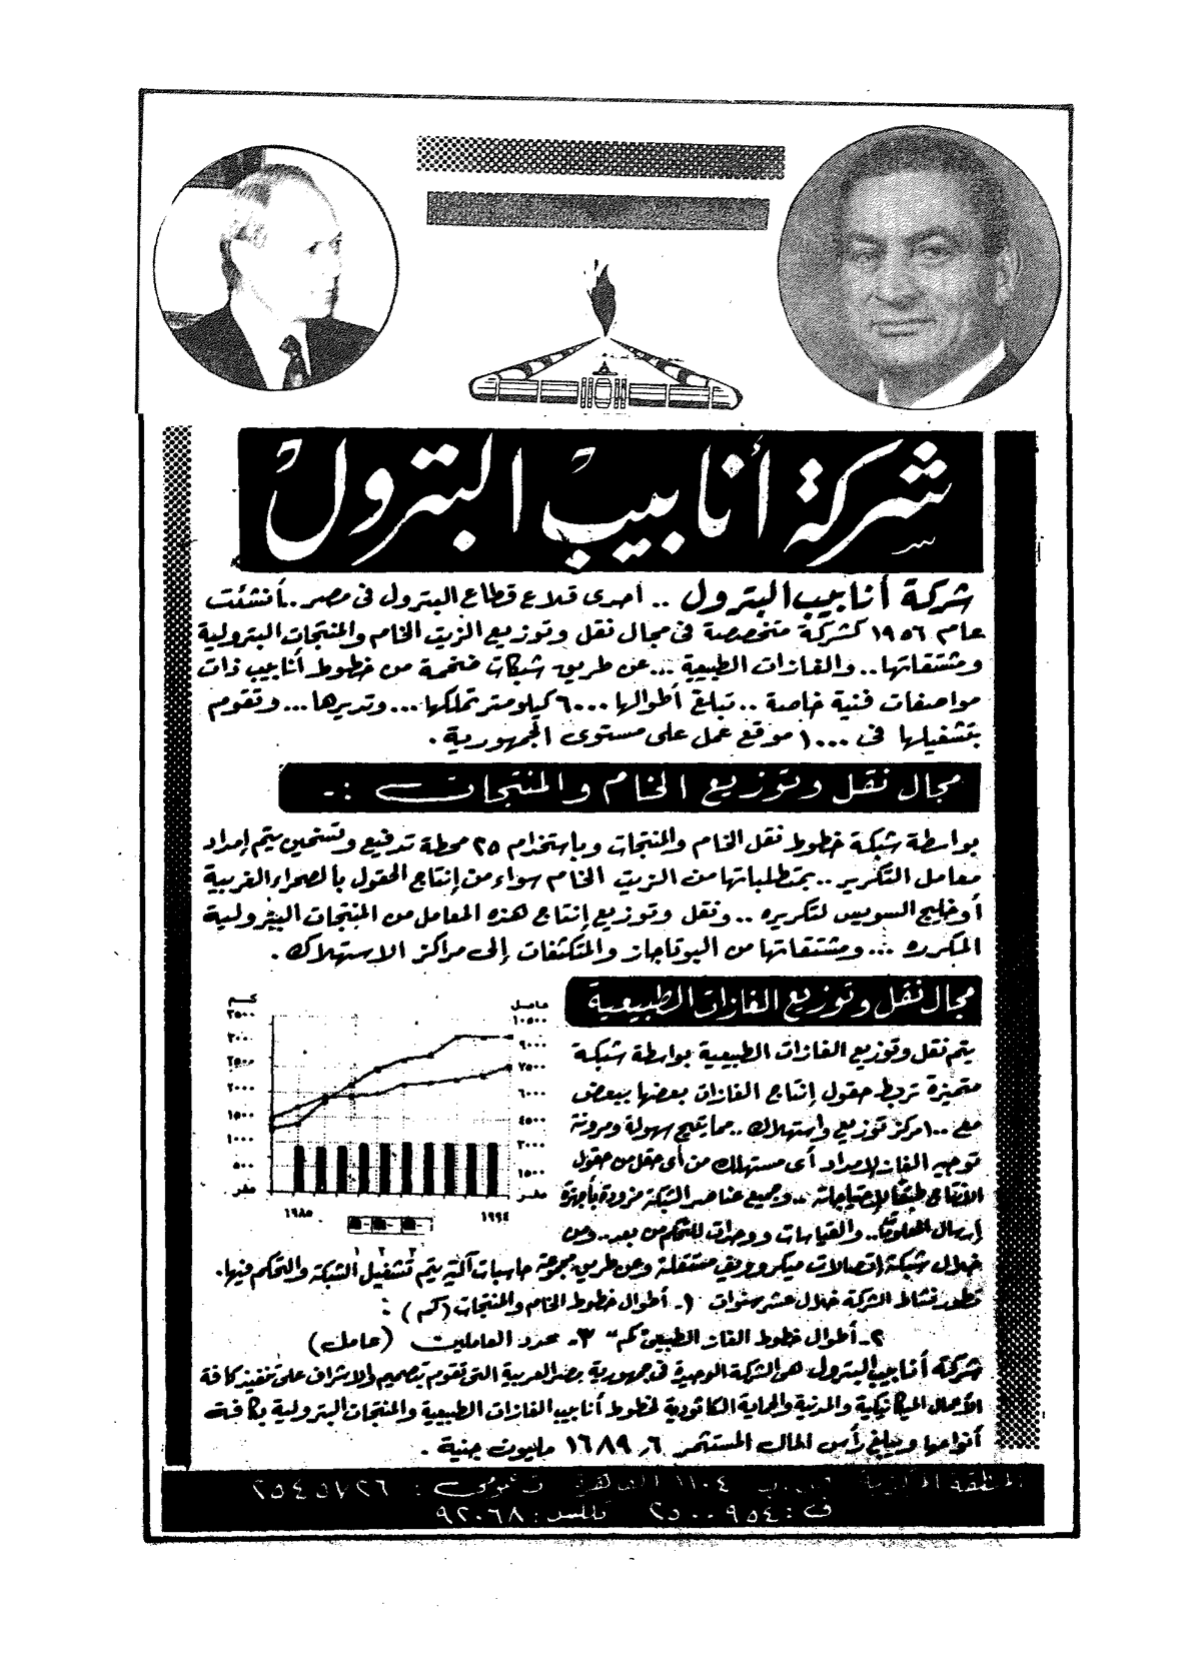 شركة أنابيب البترول
شركة أنابيب البترول .. أحدى قلاع قطاع البترول فى مصر .. أنشئت
عام ١٩٥٦ كشركة متخصصة فى مجال نقل وتوزيع الزيت الخام والمنتجات البترولية
ومشتقاتها .. والغازات الطبيعية ... عن طريق شبكات ضخمة من خطوط أنابيب ذات
مواصفات فنية خاصة .. تبلغ أطوالها ٦٠٠٠ كيلومتر تملكها ... وتديرها ... وتقوم
بتشغيلها فى ١٠٠٠ موقع عمل على مستوى الجمهورية .
مجال نقل وتوزيع الخام والمنتجات :-
بواسطة شبكة خطوط نقل الخام والمنتجات وباستخدام ٢٥ محطة تدفيع وتسخين يتم إمداد
معامل التكرير .. بمتطلباتها من الزيت الخام سواء من إنتاج الحقول بالصحراء الغربية
أو خليج السويس لتكريره .. ونقل وتوزيع إنتاج هذه المعامل من المنتجات البترولية
المكرره ... ومشتقاتها من البوتاجاز والمتكثفات إلى مراكز الاستهلاك .
مجال نقل وتوزيع الغازات الطبيعية
يتم نقل وتوزيع الغازات الطبيعية بواسطة شبكة
متميزة تربط حقول إنتاج الغازات بعضها ببعض
مركز توزيع واستهلاك .. مما يتيح سهولة ومرونة
توجيه الغاز لإمداد أى مستهلك من أى حقل من حقول
الأنتاج طبقا للإحتياجات .. وجميع عناصر الشبكة مزودة بأجهزة
إرسال المعلومات .. والقياسات ووحدات للتحكم من بعد .. ومن
كم
٣٥٠٠
٣٠٠٠
٢٥٠٠
٢٠٠٠
١٥٠٠
١٠٠٠
٥٠٠
صفر
عامل
١٠٥٠٠
٩٠٠٠
٧٥٠٠
٦٠٠٠
٤٥٠٠
٣٠٠٠
١٥٠٠
صفر
١٩٨٥ ١٩٩٤
١ ٢ ٣
خلال شبكة إتصالات ميكروويف مستقلة وعن طريق مجموعة حاسبات آلية يتم تشغيل الشبكة والتحكم فيها .
تطور نشاط الشركة خلال عشر سنوات ١- أطوال خطوط الخام والمنتجات (كم) :
٢- أطوال خطوط الغاز الطبيعى كم ٣- عدد العاملين (عامل)
شركة أنابيب البترول هى الشركة الوحيدة فى جمهورية مصر العربية التى تقوم بتصميم والاشراف على تنفيذ كافة
الأعمال الميكانيكية والمدنية والحماية الكاثودية لخطوط أنابيب الغازات الطبيعية والمنتجات البترولية بكافة
أنواعها ويبلغ رأس المال المستثمر ١٦٨٩٫٦ مليون جنية .
المنطقة ص.ب ١١٠٤ القاهرة ت عمومى : ٢٥٤٥٧٢٦
ف : ٢٥٠٠٩٥٤ تلكس : ٩٢٠٦٨